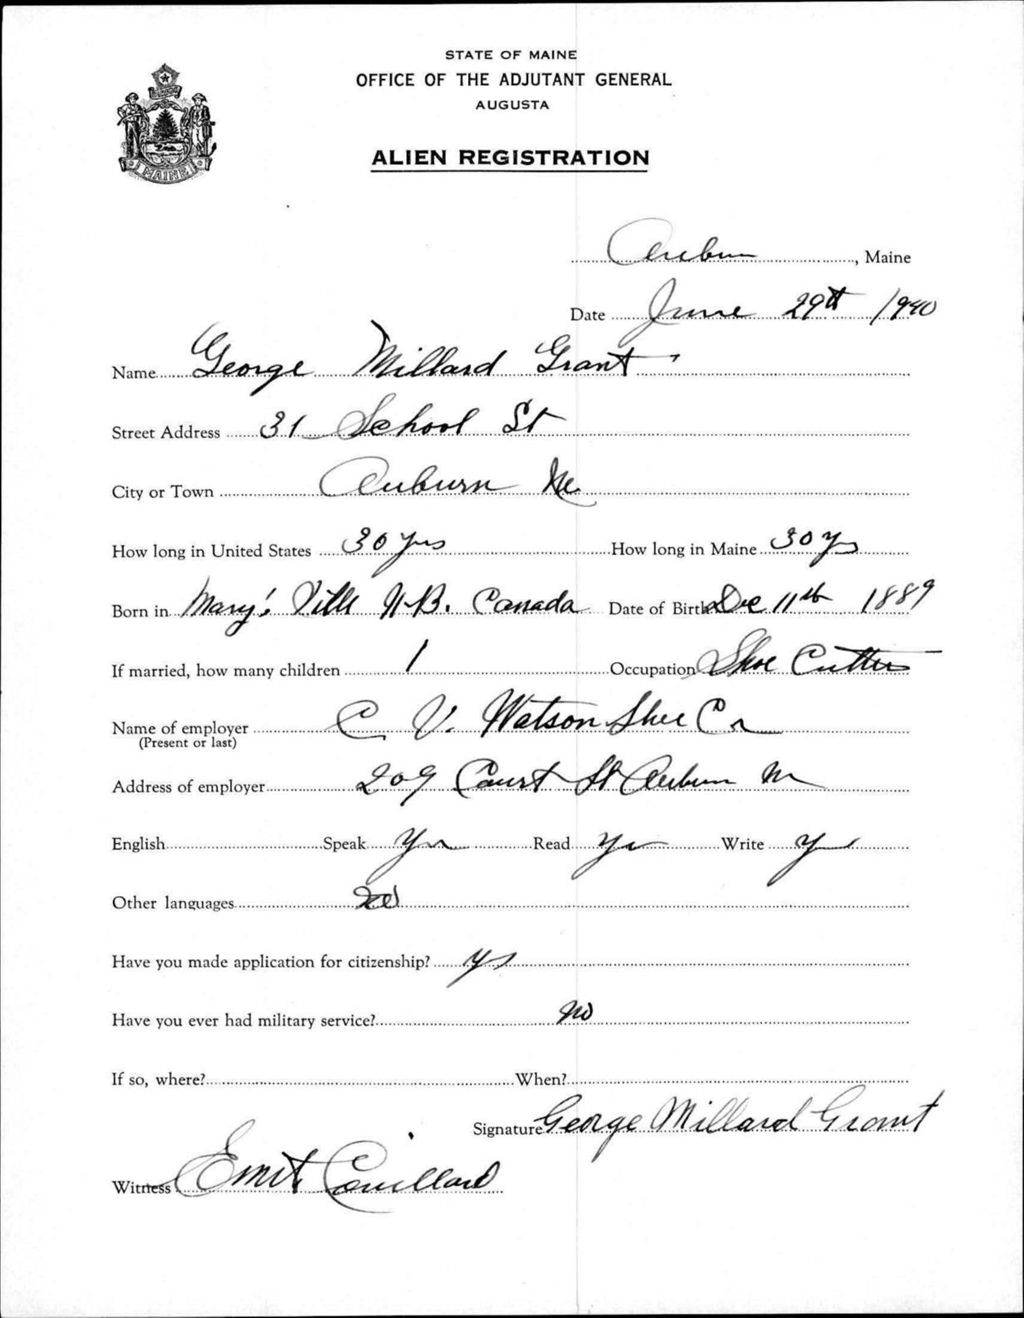 STATE OF MAINE
OFFICE OF THE ADJUTANT GENERAL
AUGUSTA
MAINE
ALIEN REGISTRATION
Auburn, Maine
Date June 29th 1940
Name George Millard Grant
Street Address 31 School St
City or Town Auburn Me.
How long in United States 30 yrs How long in Maine 30 yrs
Born in Mary's Ville N.B. Canada Date of Birth Dec 11th 1889
If married, how many children 1 Occupation Shoe Cutter
Name of employer C. V. Watson Shoe Co
(Present or last)
Address of employer 209 Court St Auburn Me
English Speak Yes Read Yes Write Yes
Other languages No
Have you made application for citizenship? Yes
Have you ever had military service? No
If so, where? When?
Signature George Millard Grant
Witness Couillard